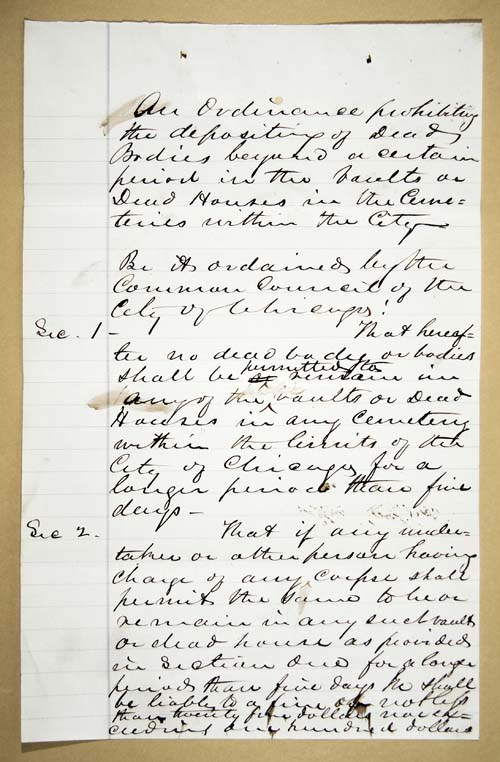 An Ordinance prohibiting
the depositing of Dead
Bodies beyond a certain
period in the Vaults or
Dead Houses in the Ceme=
teries within the City
Be it ordained by the
Common Council of the
City of Chicago!
Sec. 1 - That hereaf-
ter no dead body or bodies
shall be permitted to remain in
any of the vaults or Dead
Houses in any Cemetery
within the limits of the
City of Chicago for a
longer period than five
days -
Sec 2. That if any under-
taker or other person having
charge of any corpse shall
permit the same to be or
remain in any such vault
or dead house as provided
in Section One for a longer
period than five days he shall
be liable to a fine of not less
than twenty five dollars nor ex-
ceeding one hundred dollars